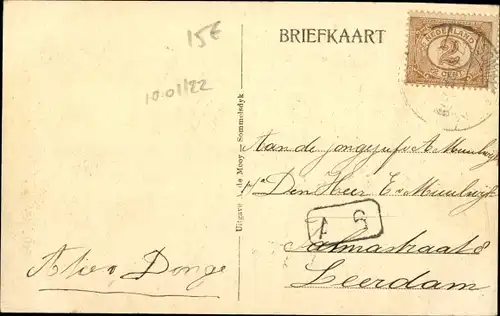 15€
10-01/22
BRIEFKAART
NEDERLAND
2
2 CENT
Uitgave de Mooy - Sommelsdyk
Aan de jongejufv A. Meulwijk
p/a Den Heer E v Meulwijk
G 1
Palmastraat 8
Leerdam
Donge